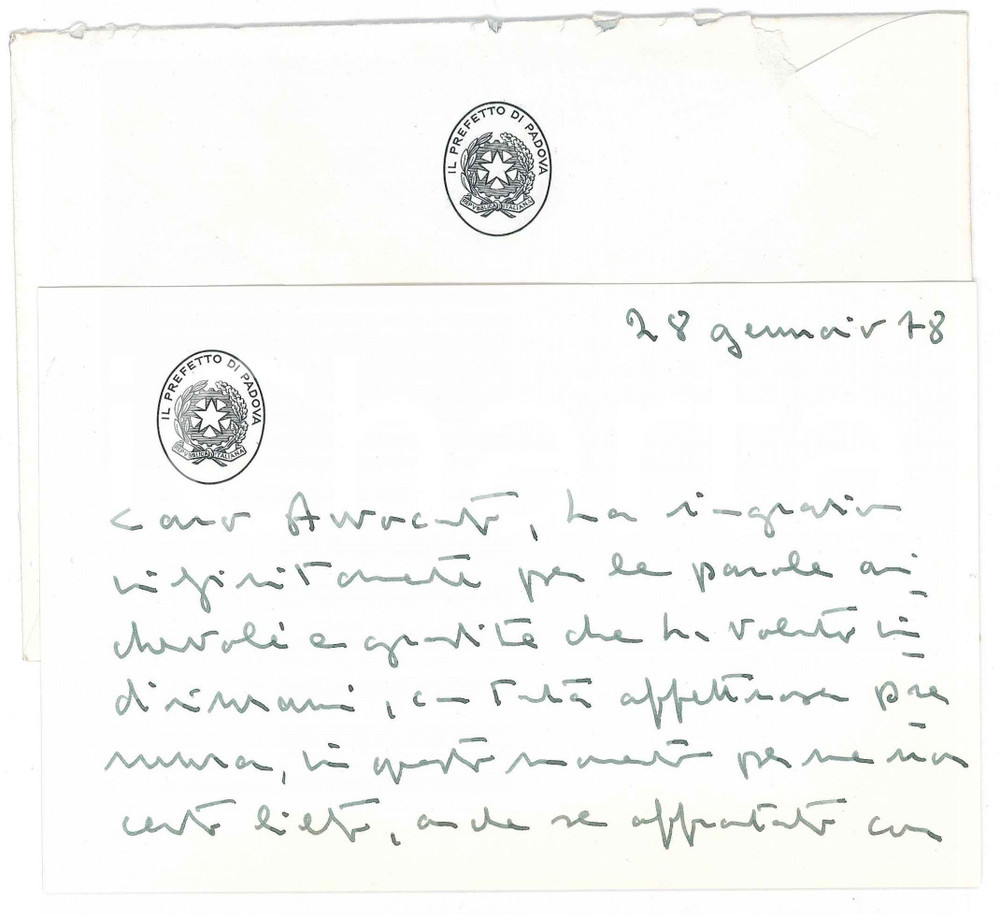 IL PREFETTO DI PADOVA
REPVBBLICA ITALIANA
28 gennaio 78
IL PREFETTO DI PADOVA
REPVBBLICA ITALIANA
Caro Avvocato, La ringrazio
infinitamente per le parole ami
chevoli e gradite che ha voluto in
dirizzarmi, con tanta affettuosa pre
mura, in questo momento per me non
certo lieto, anche se affrontato con